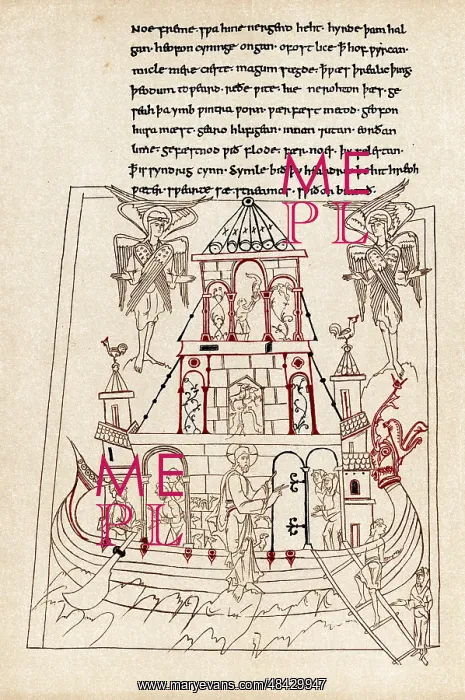 Noe freme· spa hine nergend heht· hyrde þam hal
gan· heofon cyninge ongan· ofost lice· þ hof pyrcan·
micle mere cieste· magum sægde· þ pæs þrealic þing
þeodum topeard· reðe pite· hie ne rohton þæs· ge
seah þa ymb pintra porn· pærfæst metod· geofon
husa mæst· gearo hlifigean· innan· utan· eorðan
lime· gefæstnod pið flode· fær noes· þy selestan·
þ is syndrig cynn· Symle bið þy heardra þe hit hreoh
pæter· spearte sæ streamas· spiðor
ME
PL
ME
PL
www.maryevans.com/48429947